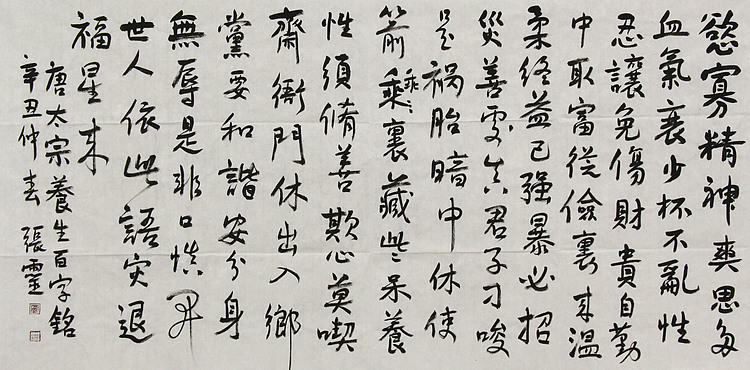 慾寡精神爽思多
血氣衰少杯不亂性
忍讓免傷財貴自勤
中取富從儉裏来溫
柔終益己强暴必招
災善處真君子刁唆
是祸胎暗中休使
箭乘乖裏藏些呆養
性須脩善欺心莫喫
齋衙門休出入鄉
黨要和諧安分身
無辱是非口慎开
世人依此語灾退
福星来
唐太宗養生百字銘
辛丑仲春 張靈